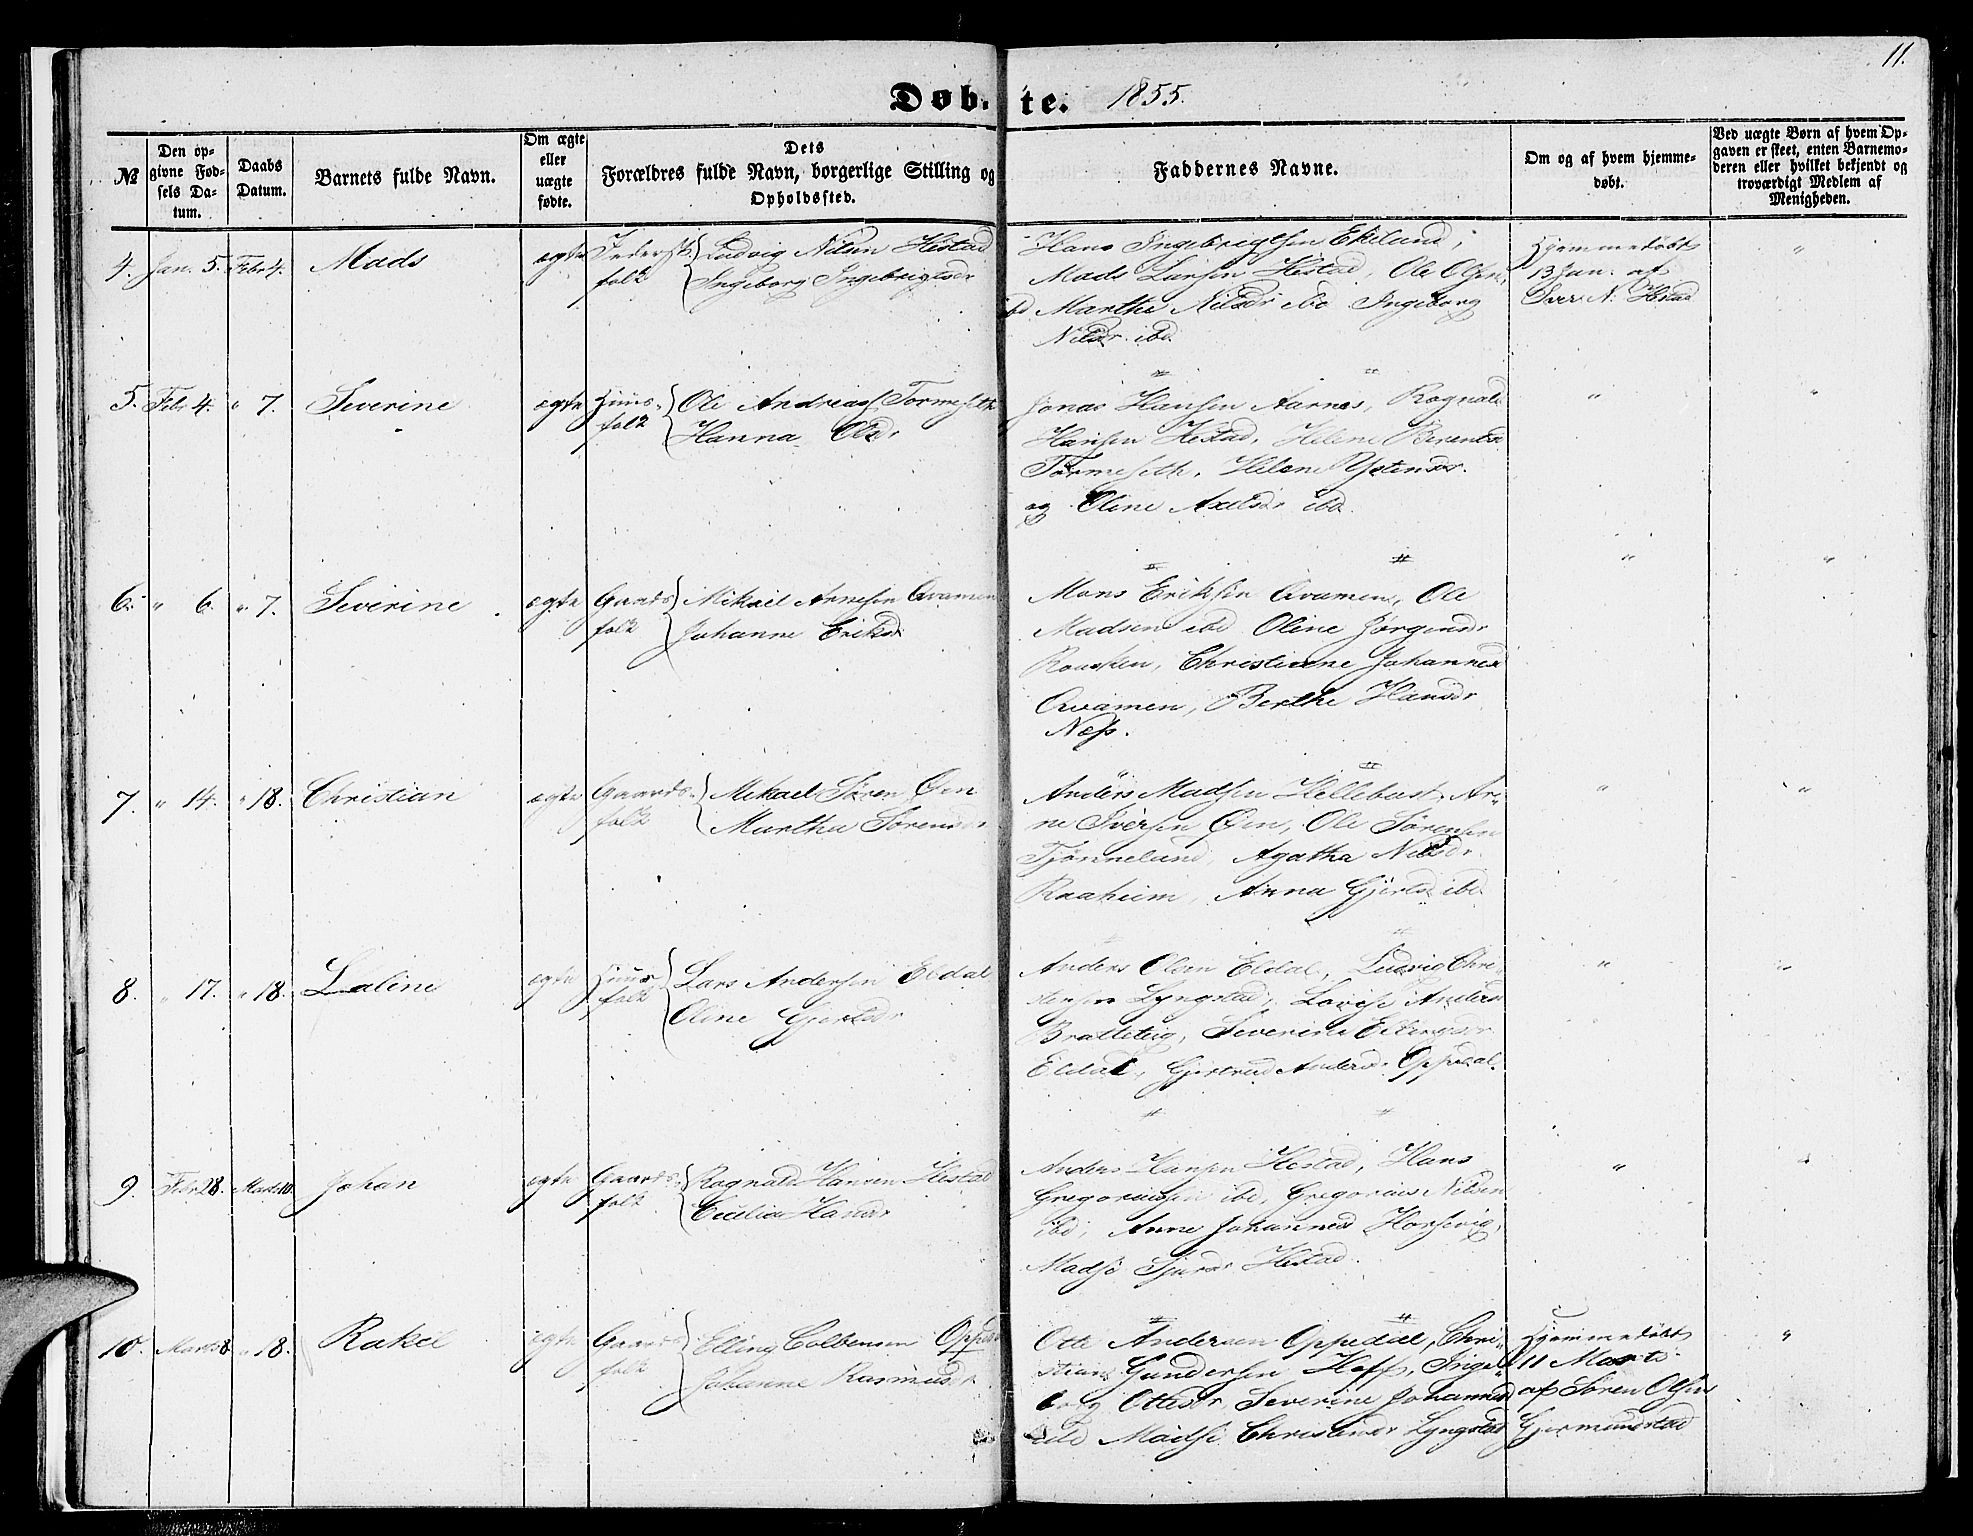 11.
Døbte. 1855.
№
Den op-
givne Fød-
sels Da-
tum.
Daabs
Datum.
Barnets fulde Navn.
Om ægte
eller
uægte
fødte.
Dets
Forældres fulde Navn, borgerlige Stilling og
Opholdssted.
Faddernes Navne.
Om og af hvem hjemme-
døbt.
Ved uægte Børn af hvem Op-
gaven er skeet, enten Barnemo-
deren eller hvilket bekjendt og
troværdigt Medlem af
Menigheden.
4. Jan. 5. Febr 4. Mads ægte
folk
Ludvig Nilsen Hestad
Ingeborg Ingebrigtsdr
Hans Ingebrigtsen Ekelund,
Mads Larsen Hestad, Ole Olsen
ibd Marthe Nilsdr ibd Ingeborg
Nilsdr. ibd.
Hjemmedøbt
13 Jan. af
N. Hestad
"
5. Febr 4. " 7. Severine ægte Huus-
folk
Ole Andreass Tormeseth
Hanna Olsdr
Jonas Hansen Aarnes, Rognald
Hansen Hestad, Helene Berentsd
Tormeseth, Helene Ystensdr.
og Oline Axelsdr ibd.
" "
6. " 6. " 7. Severine. ægte Gaards
folk
Mikael Arnesen Qvamen
Johanne Eriksd
Mons Eriksen Qvamen, Ole
Madsen ibd Oline Jørgensdr
Christianne Johannesd
Qvamen, Berthe Hansdr
Ness.
" "
7. " 14. " 18. Christian ægte Gaards-
folk
Mikael Søren Øen
Martha Sørensdr
Anders Madsen Hellebust, Ar-
ne Iversen Øen, Ole Sørensen
Tjønnelund, Agatha Nilsdr.
Raaheim, Anna Gjertsd ibd
" "
8. " 17. " 18. Laline ægte Huus
folk
Lars Andersen Eldal
Oline Gjertsdr
Anders Olsen Eldal, Ludvig Chri-
stensen Lyngstad, Lovise Andersd
Bratteteig, Severine Ellingsdr
Eldal, Gjertrud Andersdr Oppedal.
" "
9. Febr 28. Marts 10. Johan ægte Gaards-
folk
Rognald Hansen Hestad
Cicilia Hansdr
Anders Hansen Hestad, Hans
Gregoriussen ibd, Gregorius Nilsen
ibd, Anne Johannesd Horsevig,
Madse Sjursdr Hestad.
" "
10. Marts 8 " 18. Rakel ægte Gaards
folk
Elling Colbensen Opped
Johanne Rasmusdr
Otte Andersen Oppedal, Chri-
stian Gundersen Hoff, Inge-
borg Ottesdr Severine Johannesd
ibd Madse Christensdr Lyngstad
Hjemmedøbt
11 Marts
af Søren Olsen
Gjermundstad
"